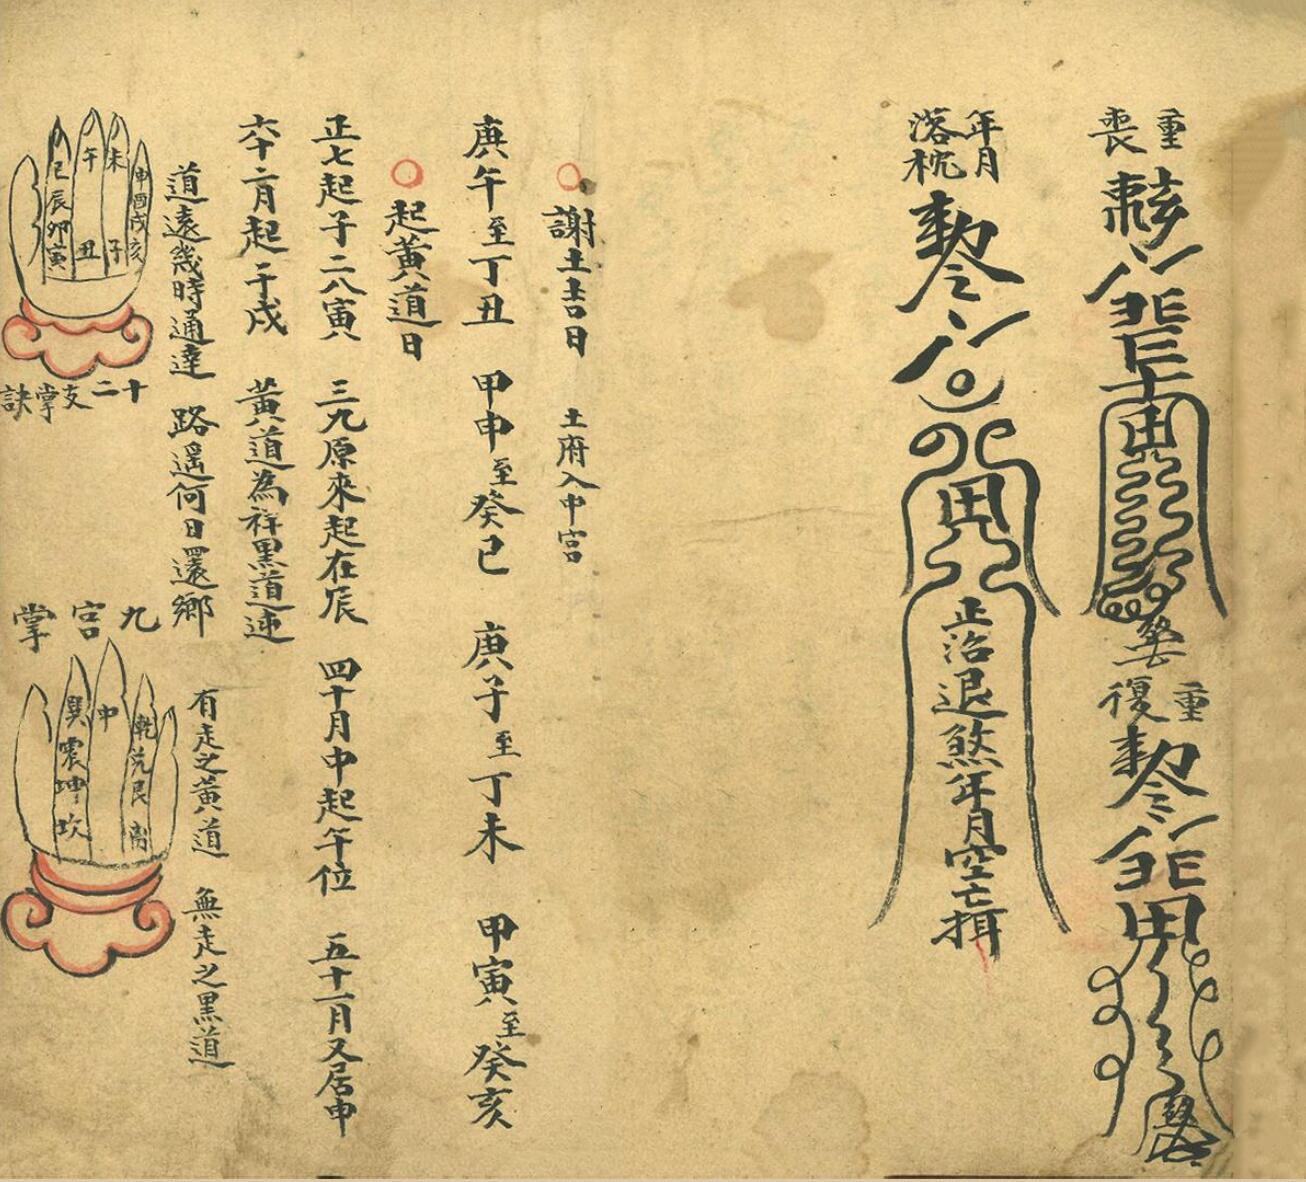 重喪
重復
年月落枕
正治退煞年月空亡
謝土吉日 土府入中宮
庚午至丁丑 甲申至癸巳 庚子至丁未 甲寅至癸亥
起黃道日
正七起子二八寅 三九原來起在辰 四十月中起午位 五十一月又居申
六十二月起于戌 黃道為祥黑道迍
道遠幾時通達 路遥何日還鄉
有走之黃道 無走之黑道
巳辰卯寅
午丑
未子
申酉戌亥
十二支掌訣
九宮掌
巽震坤坎
中
乾兌艮离